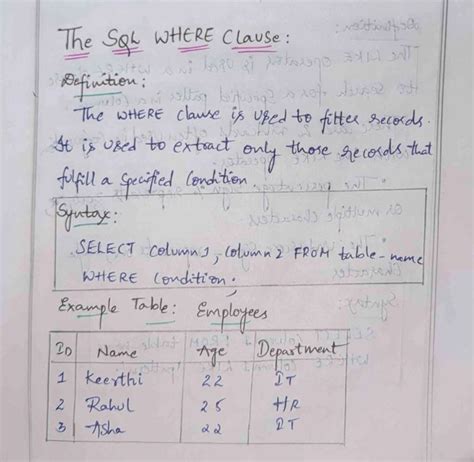 The SQL WHERE Clause:
Definition:
The WHERE clause is used to filter records.
It is used to extract only those records that
fulfill a specified Condition
Syntax:
SELECT Column1, Column2 FROM table-name
WHERE Condition;
Example Table: Employees
ID Name Age Department
1 Keerthi 22 IT
2 Rahul 25 HR
3 Asha 22 IT